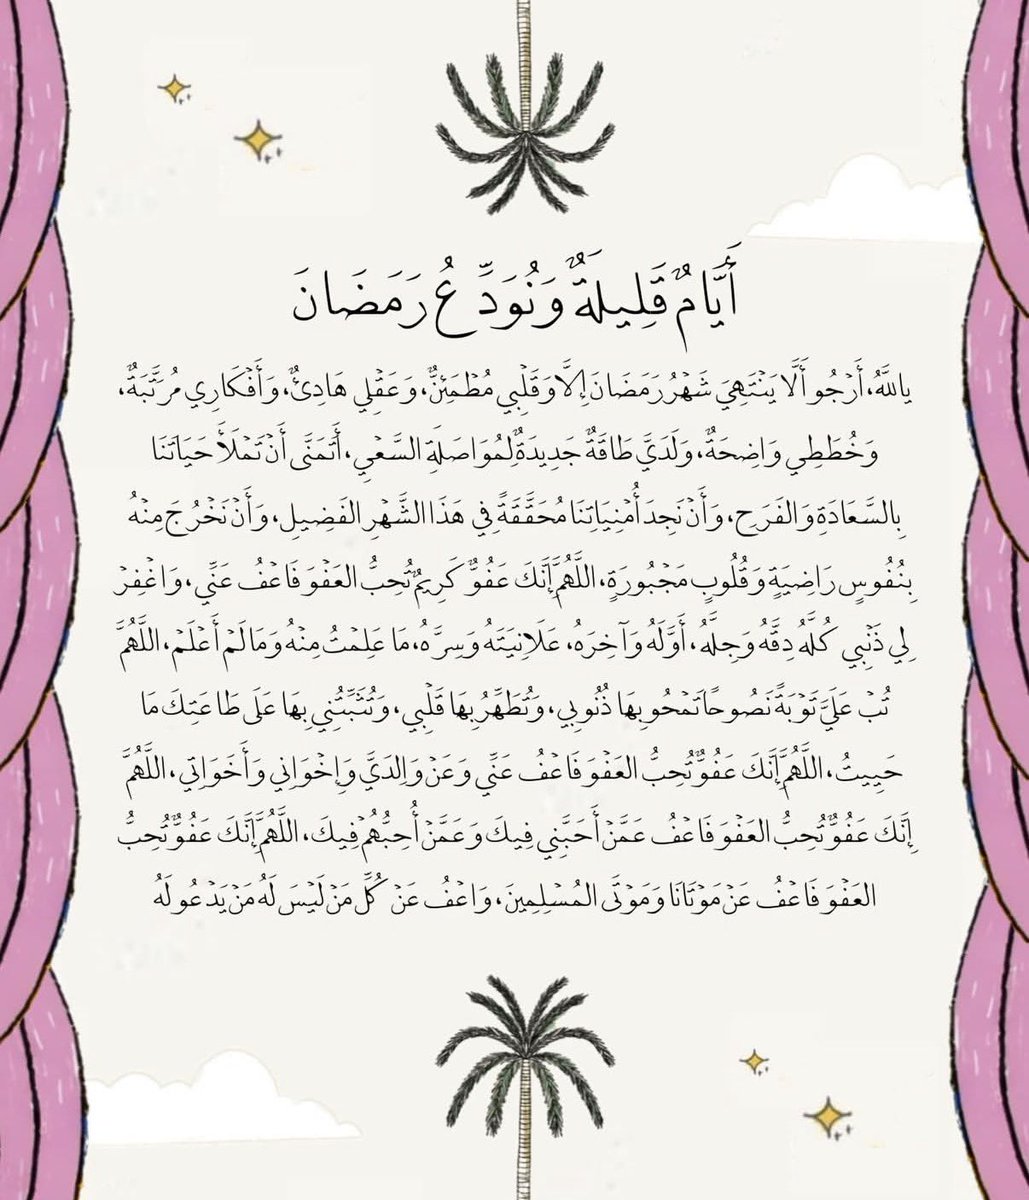 أَيَّامٌ قَلِيلَةٌ وَنُوَدِّعُ رَمَضَانَ
يالله، أَرْجُو أَلَّا يَنْتَهِيَ شَهْرُ رَمَضَانَ إِلَّا وَقَلْبِي مُطْمَئِنٌّ، وَعَقْلِي هَادِئٌ، وَأَفْكَارِي مُرَتَّبَةٌ،
وَخُطَطِي وَاضِحَةٌ، وَلَدَيَّ طَاقَةٌ جَدِيدَةٌ لِمُوَاصَلَةِ السَّعْيِ، أَتَمَنَّى أَنْ تَمْلَأَ حَيَاتَنَا
بِالسَّعَادَةِ وَالفَرَحِ، وَأَنْ نَجِدَ أُمْنِيَاتِنَا مُحَقَّقَةً فِي هَذَا الشَّهْرِ الفَضِيلِ، وَأَنْ نَخْرُجَ مِنْهُ
بِنُفُوسٍ رَاضِيَةٍ وَقُلُوبٍ مَجْبُورَةٍ، اللَّهُمَّ إِنَّكَ عَفُوٌّ كَرِيمٌ تُحِبُّ العَفْوَ فَاعْفُ عَنِّي، وَاغْفِرْ
لِي ذَنْبِي كُلَّهُ دِقَّهُ وَجِلَّهُ، أَوَّلَهُ وَآخِرَهُ، عَلَانِيَتَهُ وَسِرَّهُ، مَا عَلِمْتُ مِنْهُ وَمَا لَمْ أَعْلَمْ، اللَّهُمَّ
تُبْ عَلَيَّ تَوْبَةً نَصُوحًا تَمْحُو بِهَا ذُنُوبِي، وَتُطَهِّرُ بِهَا قَلْبِي، وَتُثَبِّتُنِي بِهَا عَلَى طَاعَتِكَ مَا
حَيِيتُ، اللَّهُمَّ إِنَّكَ عَفُوٌّ تُحِبُّ العَفْوَ فَاعْفُ عَنِّي وَعَنْ وَالِدَيَّ وَإِخْوَانِي وَأَخَوَاتِي، اللَّهُمَّ
إِنَّكَ عَفُوٌّ تُحِبُّ العَفْوَ فَاعْفُ عَمَّنْ أَحَبَّنِي فِيكَ وَعَمَّنْ أُحِبُّهُمْ فِيكَ، اللَّهُمَّ إِنَّكَ عَفُوٌّ تُحِبُّ
العَفْوَ فَاعْفُ عَنْ مَوْتَانَا وَمَوْتَى المُسْلِمِينَ، وَاعْفُ عَنْ كُلِّ مَنْ لَيْسَ لَهُ مَنْ يَدْعُو لَهُ